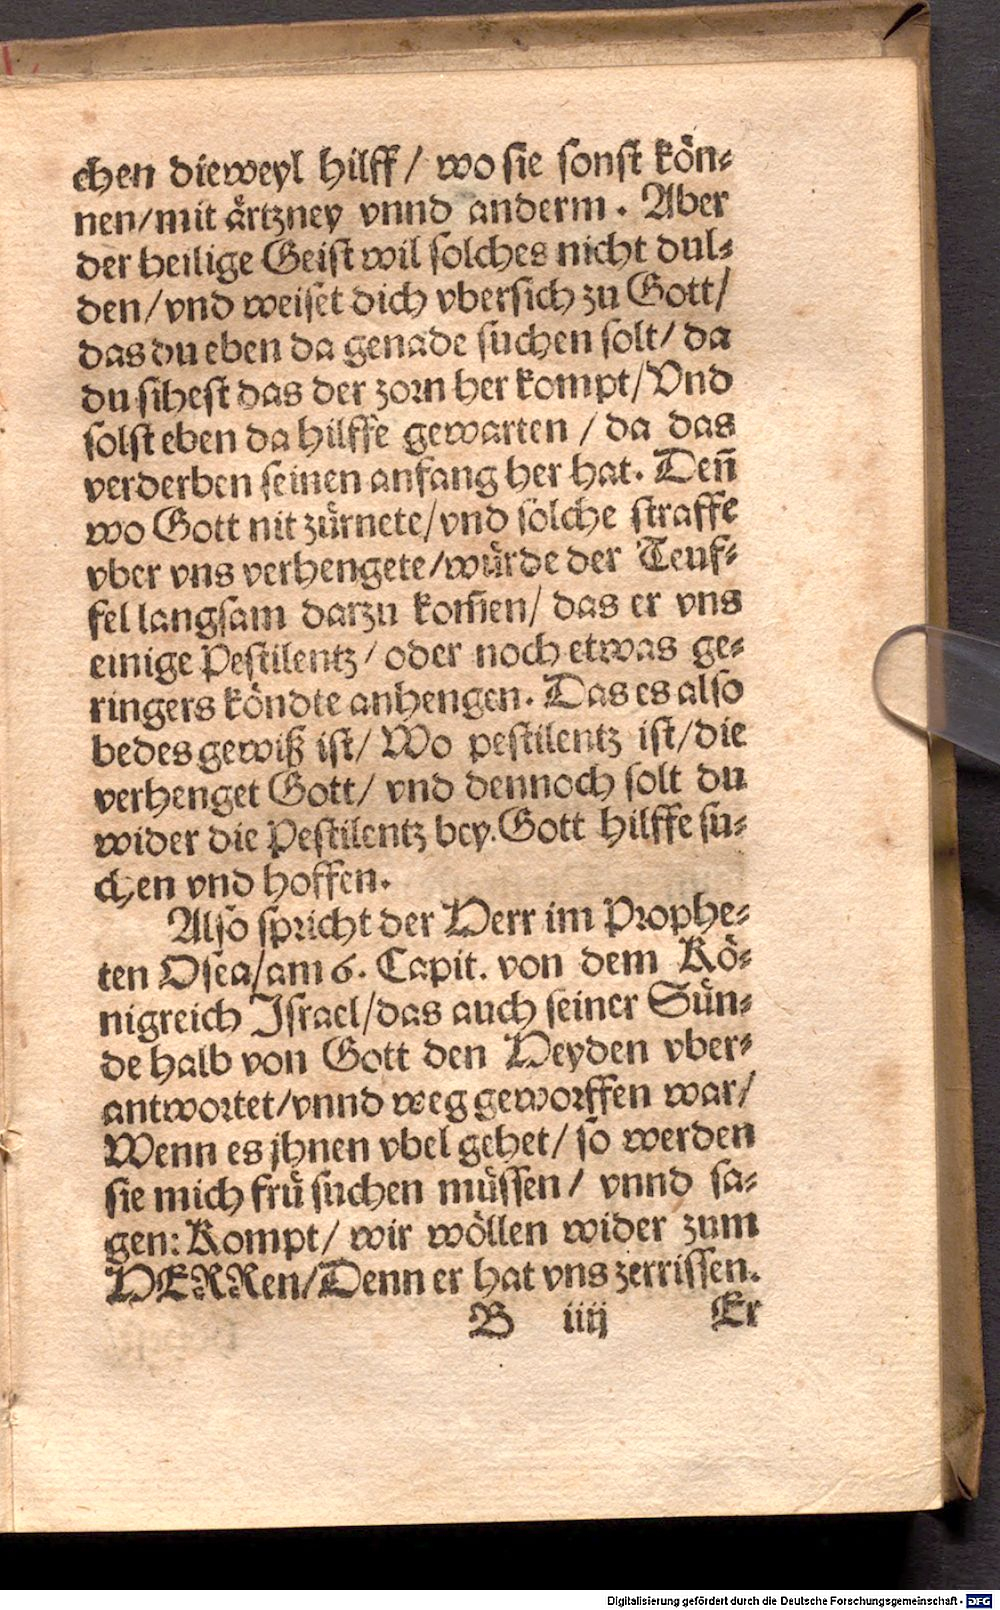 chen dieweyl hilff / wo sie sonst kön-
nen/mit ärtzney vnnd anderm. Aber
der heilige Geist wil solches nicht dul-
den/vnd weiset dich vbersich zu Gott/
das du eben da genade suchen solt/ da
du sihest das der zorn her kompt/Vnd
solst eben da hilffe gewarten / da das
verderben seinen anfang her hat. Deñ
wo Gott nit zürnete/vnd sölche straffe
vber vns verhengete/würde der Teuf-
fel langsam darzu kom̃en/ das er vns
einige Pestilentz/ oder noch etwas ge-
ringers köndte anhengen. Das es also
bedes gewiß ist/ Wo pestilentz ist/die
verhenget Gott/ vnd dennoch solt du
wider die Pestilentz bey Gott hilffe su-
chen vnd hoffen.
Also spricht der Herr im Prophe-
ten Osea/am 6. Capit. von dem Kö-
nigreich Israel/das auch seiner Sün-
de halb von Gott den Heyden vber-
antwortet/vnnd weg geworffen war/
Wenn es jhnen vbel gehet/ so werden
sie mich frü suchen müssen/ vnnd sa-
gen: Kompt/ wir wöllen wider zum
HERRen/Denn er hat vns zerrissen.
B iiij Er
Digitalisierung gefördert durch die Deutsche Forschungsgemeinschaft - DFG